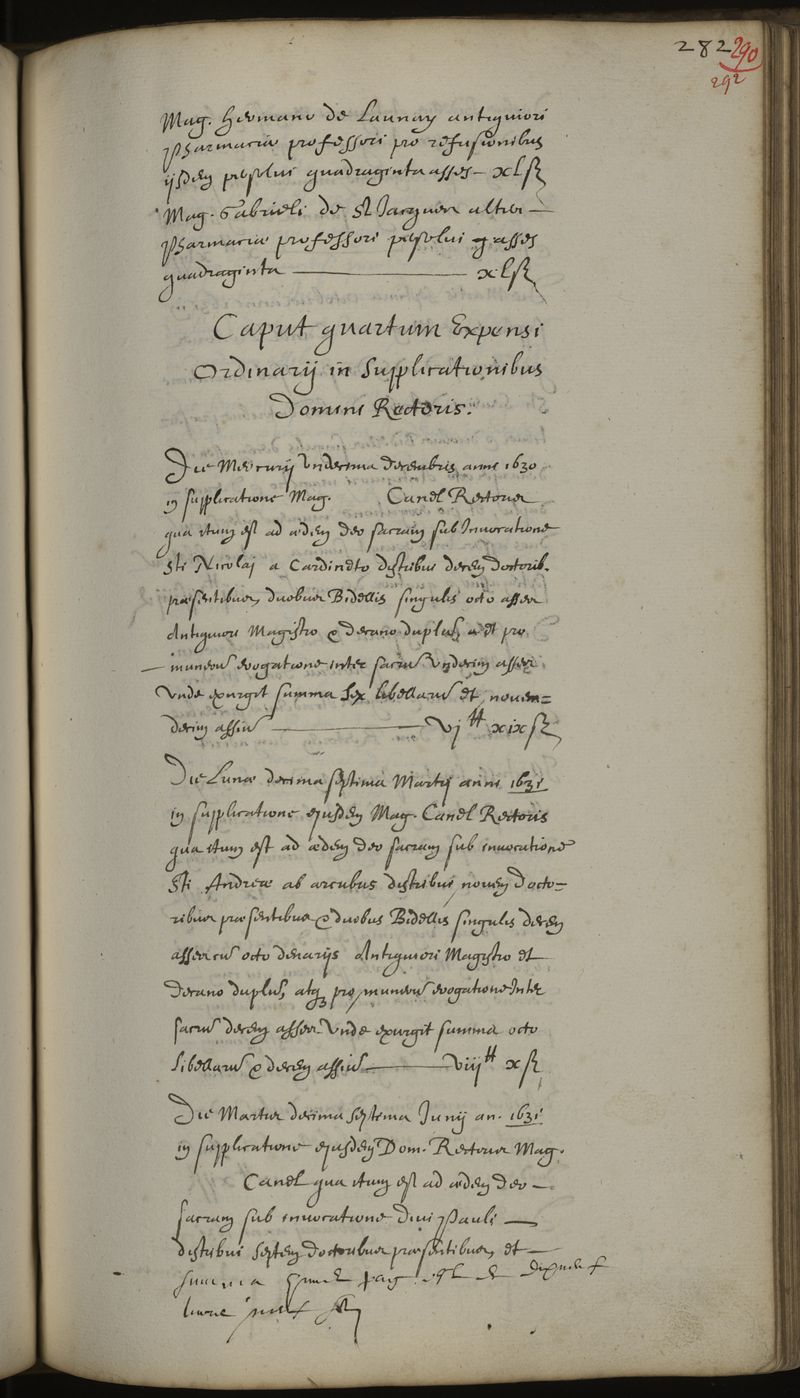 282 290
292
Mag. Hermano de Launay antiquiori
Pharmaciæ professori pro refusionibus
ijsdem persolui quadraginta asses — xl ſ
Mag. Gabrieli de St Jacques alteri —
Pharmaciæ professori persolui asses
quadraginta — xl ſ
Caput quartum Expensi
Ordinarij in supplicationibus
Domini Rectoris.
Die Mercurij Vndecima decembris anni 1630
in supplicatione Mag. Canel Rectoris
qua itum est ad ædem deo sacram sub Inuocatione
Sti Nicolaj a Cardineto distribui decem doctorib.
præsentibus, duobus Bidellis singulis octo asses
Antiquiori Magistro & decano duplum et pro
munerum erogatione inter sacrum Vndecim asses
Vnde exurgit summa sex libellarum et nouen=
decim assium — Vj ₶ xix ſ
Die Lunæ decima septima Martij anni 1631
in supplicatione ejusdem Mag. Canel Rectoris
qua itum est ad ædem deo sacram sub inuocatione
Sti Andreæ ab arcubus distribui nouem docto=
ribus præsentibus & duobus Bidellis singulis decem
asses cum octo denarijs Antiquiori Magistro et
Decano duplum, atq pro munerum erogatione Inter
sacrum decem asses. Vnde exurgit summa octo
libellarum & decem assium — Viij ₶ x ſ
Die Martis decima septima Junij an. 1631
in supplicatione ejusdem Dom. Rectoris Mag.
Canel qua itum est ad ædem deo —
sacram sub inuocatione diui Pauli —
distribui septem doctoribus præsentibus, et —
summa